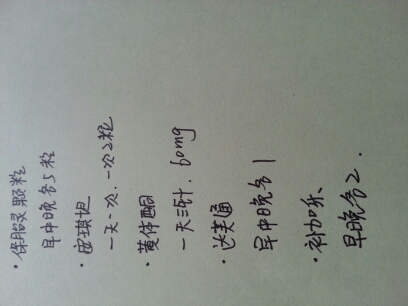 ·保胎灵颗粒
早中晚各5粒
·安琪坦
一天一次.一次2粒
·黄体酮
一天三针.60mg
·达芙通
早中晚各1
·补佳乐
早晚各2.